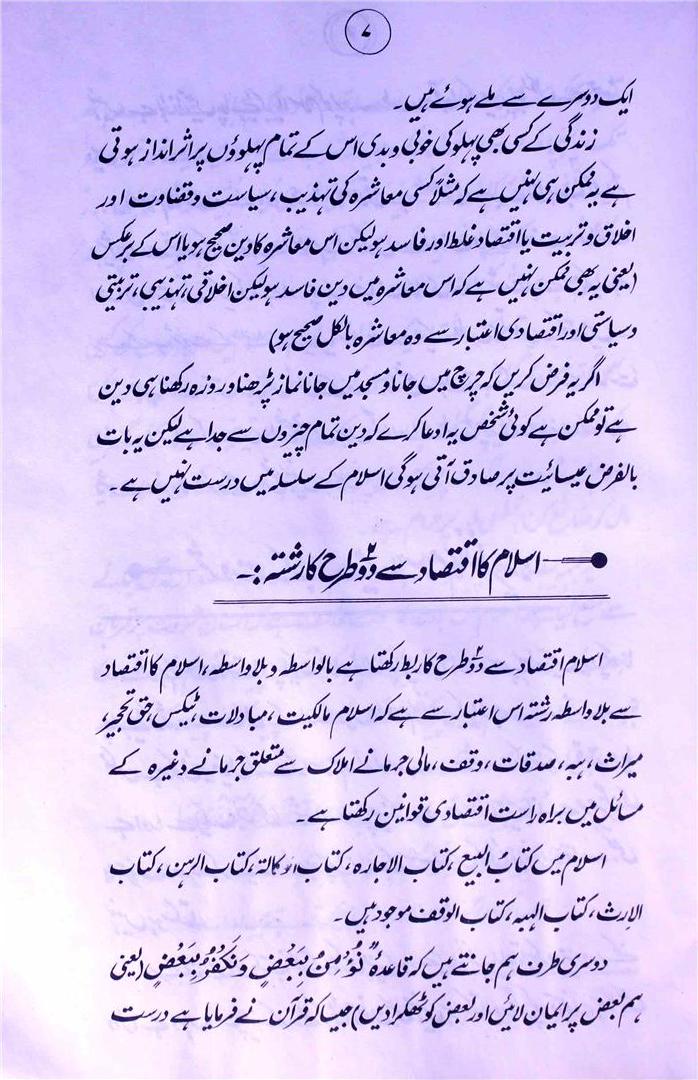 ۷
ایک دوسرے سے ملے ہوئے ہیں۔
زندگی کے کسی بھی پہلو کی خوبی و بدی اس کے تمام پہلوؤں پر اثر انداز ہوتی
ہے یہ ممکن ہی نہیں ہے کہ مثلاً کسی معاشرہ کی تہذیب، سیاست و قضاوت اور
اخلاق و تربیت یا اقتصاد غلط اور فاسد ہو لیکن اس معاشرہ کا دین صحیح ہو یا اس کے برعکس
(یعنی یہ بھی ممکن نہیں ہے کہ اس معاشرہ میں دین فاسد ہو لیکن اخلاقی، تہذیبی، تربیتی
و سیاستی اور اقتصادی اعتبار سے وہ معاشرہ بالکل صحیح ہو)
اگر یہ فرض کریں کہ چرچ میں جانا و مسجد میں جانا نماز پڑھنا و روزہ رکھنا ہی دین
ہے تو ممکن ہے کوئی شخص یہ ادعا کرے کہ دین تمام چیزوں سے جدا ہے لیکن یہ بات
بالفرض عیسائیت پر صادق آتی ہوگی اسلام کے سلسلہ میں درست نہیں ہے۔
اسلام کا اقتصاد سے دو۲ طرح کا رشتہ :۔
اسلام اقتصاد سے دو۲ طرح کا ربط رکھتا ہے بالواسطہ و بلا واسطہ، اسلام کا اقتصاد
سے بلا واسطہ رشتہ اس اعتبار سے ہے کہ اسلام مالکیت، مبادلات، ٹیکس، حق تحجیر،
میراث، ہبہ، صدقات، وقف، مالی جرمانے املاک سے متعلق جرمانے وغیرہ کے
مسائل میں براہ راست اقتصادی قوانین رکھتا ہے۔
اسلام میں کتابُ البیع، کتاب الاجارہ، کتاب الوکالۃ، کتاب الرہن، کتاب
الاِرث، کتاب الہبہ، کتاب الوقف موجود ہیں۔
دوسری طرف ہم جانتے ہیں کہ قاعدۂ "نُؤْمِنُ بِبَعْضٍ وَنَكْفُرُ بِبَعْضٍ (یعنی
ہم بعض پر ایمان لائیں اور بعض کو ٹھکرا دیں) جیسا کہ قرآن نے فرمایا ہے درست